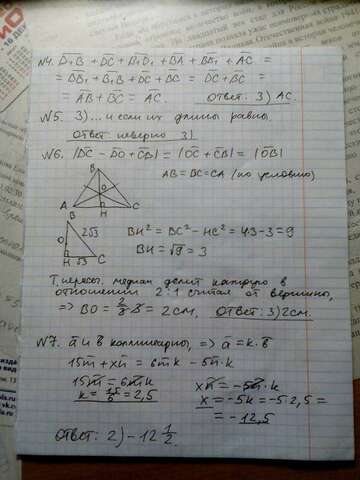 №4. D₁B + DC + B₁D₁ + BA + BB₁ + AC =
= DB₁ + B₁B + DC + BC = DC + BC =
= AB + BC = AC. Ответ: 3) AC.
№5. 3) ... и если их длины равны.
Ответ неверно 3)
№6. |DC - DO + CB| = |OC + CB| = |OB|
B
AB = BC = CA (по условию)
O
A H C
B
2√3
O
H √3 C
BH² = BC² - HC² = 4·3 - 3 = 9
BH = √9 = 3
Т. пересеч. медиан делит каждую в
отношении 2:1 считая от вершины,
=> BO = 2/3 · 3 = 2 см, Ответ: 3) 2см.
№7. a и b коллинеарны, => a = k·b
15m + xn = 6mk - 5n·k
15m = 6mk
k = 15/6 = 2,5
xn = -5n·k
x = -5k = -5·2,5 =
= -12,5
Ответ: 2) -12 1/2.